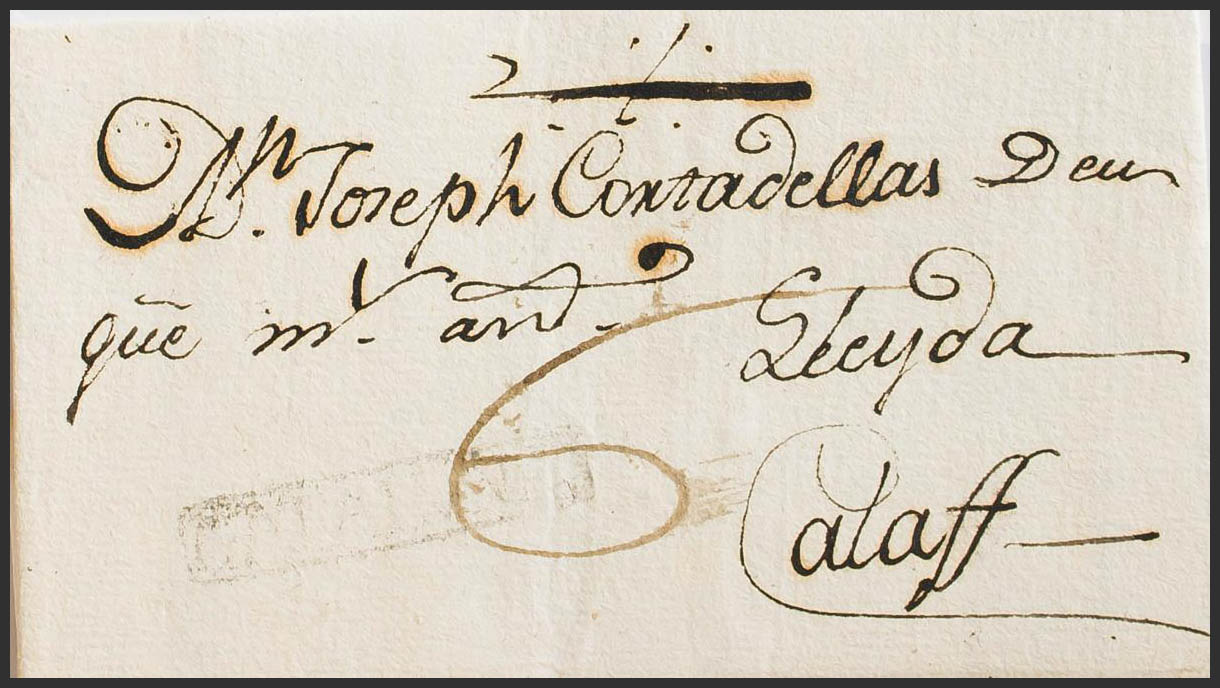 Dn. Joseph Cortadellas Deu
que ms. ans.
Lleyda
6
Calaff